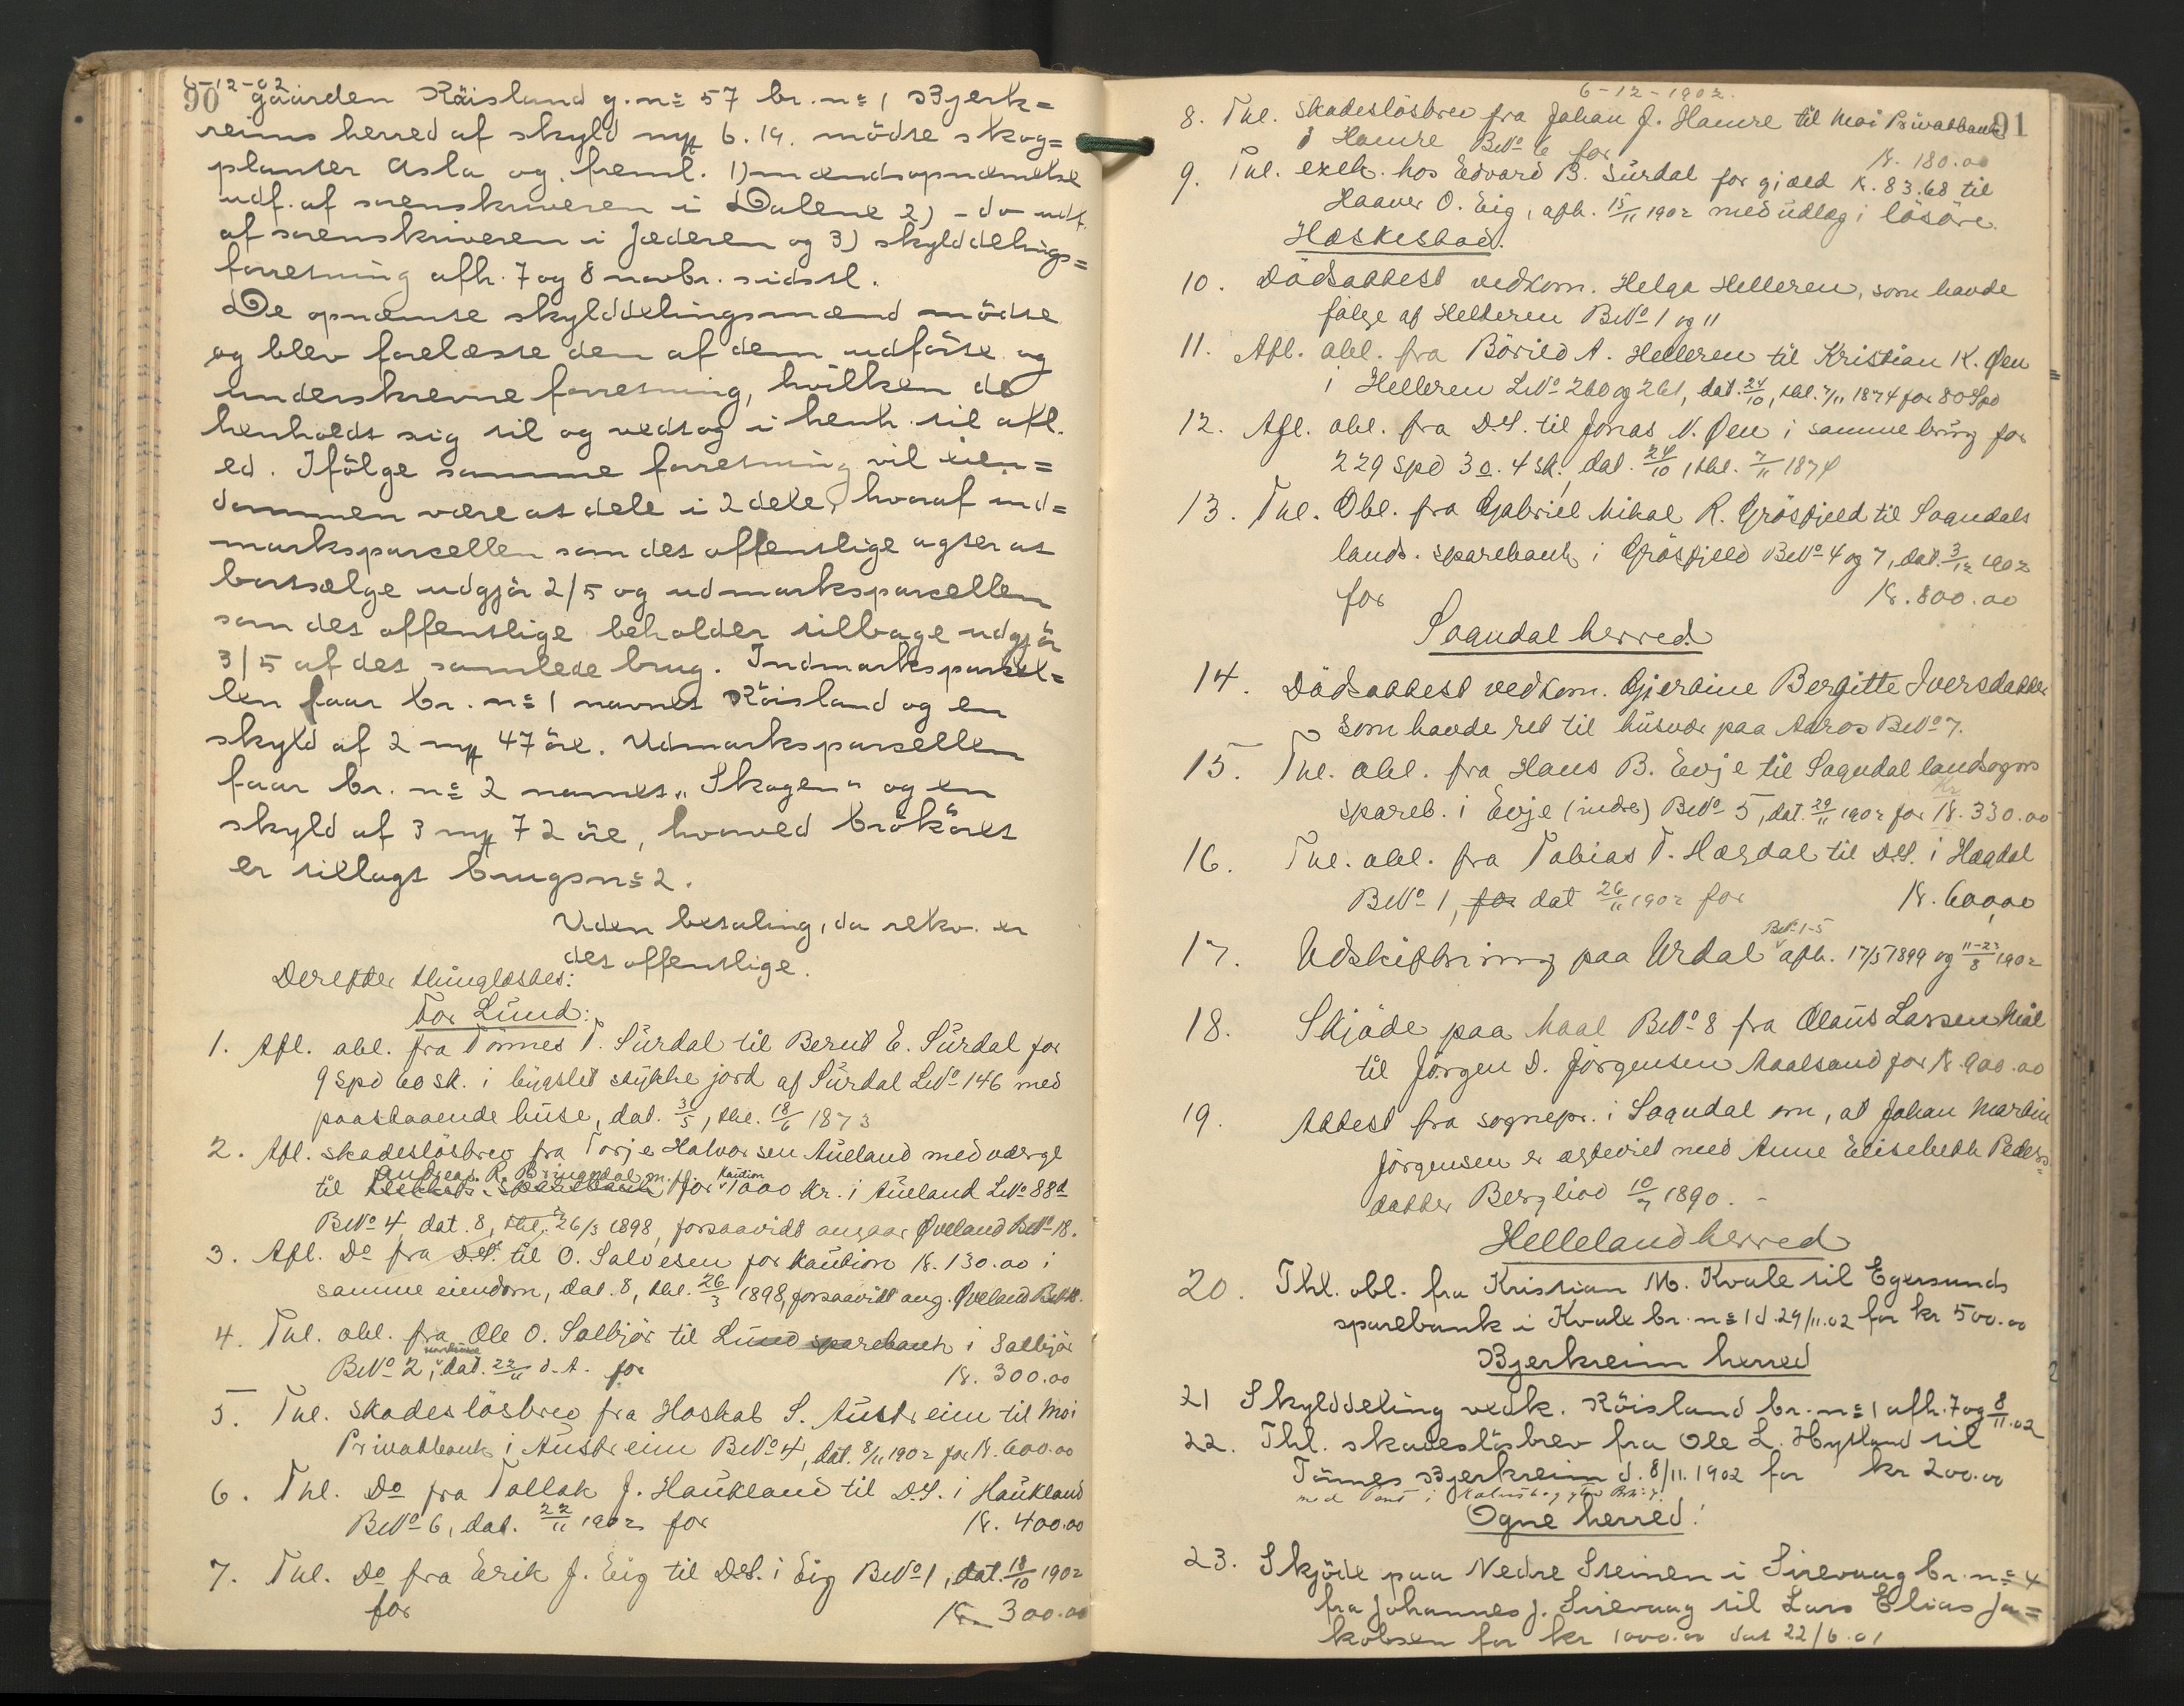 6-12-02
90 gaarden Röisland g. n= 57 br. n= 1 Bjerk=
reims herred af skyld mrk 6.19. mödte skog=
planter Asla og freml. 1) mændsopnævnelse
udf. af sorenskriveren i Dalene 2) - do - udf.
af sorenskriveren i Jæderen og 3) skylddelings=
forretning afh. 7 og 8 novbr. sidstl.
De opnævnte skylddelingsmænd mödte
og blev forelæste den af dem udförte og
underskrevne forretning, hvilken de
henholdt sig til og vedtog i henh. til afl.
ed. Ifölge samme forretning vil eien=
dommen være at dele i 2 dele, hvoraf ind=
marksparcellen som det offentlige agter at
bortsælge udgjör 2/5 og udmarksparcellen
som det offentlige beholder tilbage udgjör
3/5 af det samlede brug. Indmarksparcel=
len faar br. n= 1 navnet Röisland og en
skyld af 2 mrk 47 öre. Udmarksparcellen
faar br. n= 2 navnet „Skogen“ og en
skyld af 3 mrk 72 öre, hvorved brököret
er tillagt brugsn= 2.
Uden betaling, da rekv. er
det offentlige.
Derefter thinglæstes:
For Lund:
1. Afl. obl. fra Tönnes T. Surdal til Bernt E. Surdal for
9 Spd 60 sk. i bygslet stykke jord af Surdal LNo 146 med
paastaaende huse, dat. 3/5, thl. 18/6 1873
2. Afl. skadeslösbrev fra Torje Halvorsen Aueland med værge
Andreas R. Bringedal m. fl. Kaution
til for 1000 Kr. i Aueland LNo 88d
BNo 4, dat. 8, thl. 26/3 1898, forsaavidt angaar Øveland BNo 18.
3. Afl. Do fra D.S. til O. Salvesen for Kaution K. 130.00 i
samme eiendom, dat. 8, thl. 26/3 1898, forsaavidt ang. Øveland BNo 18.
4. Thl. obl. fra Ole O. Salbjör til Lund sparebank i Salbjör
BNo 2, dat. 22/11 d. A. for K. 300.00
5. Thl. skadeslösbrev fra Hoskal S. Austreim til Moi
Privatbank i Austreim BNo 4, dat. 8/11 1902 for K. 600.00
6. Thl. Do fra Tollak J. Haukland til D.S. i Haukland
BNo 6, dat. 22/11 1902 for K. 400.00
7. Thl. Do fra Erik J. Eig til D.S. i Eig BNo 1, dat. 18/10 1902
for K. 300.00
6-12-1902.
91
8. Thl. skadeslösbrev fra Johan J. Hamre til Moi Privatbank
i Hamre BNo 6 for K. 180.00
9. Thl. exek. hos Edvard B. Surdal for gjæld K. 83.68 til
Haaver O. Eig, afh. 15/11 1902 med udlæg i lösöre.
Heskestad.
10. Dödsattest vedkom. Helga Helleren, som havde
fölge af Helleren BNo 1 og 11
11. Afl. obl. fra Böried A. Helleren til Kristian K. Øen
i Helleren LNo 260 og 261, dat. 24/10, thl. 7/11 1874 for 80 Spd
12. Afl. obl. fra D.S. til Jonas N. Øen i samme brug for
229 Spd 3 o. 4 sk. dat. 24/10, thl. 7/11 1874
13. Thl. Obl. fra Gabriel Mikal R. Grösfjeld til Sogndals
lands. sparebank i Grösfjeld BNo 4 og 7, dat. 3/12 1902
for K. 800.00
Sogndal herred.
14. Dödsattest vedkom. Gjertine Bergitte Iversdatter
som havde ret til husvær paa Aaros BNo 7.
15. Thl. obl. fra Hans B. Evje til Sogndal landsogns
spareb. i Evje (indre) BNo 5, dat. 29/11 1902 for K. 330.00
16. Thl. obl. fra Tobias T. Hægdal til D.S. i Hægdal
BNo 1, for dat 26/11 1902 for K. 600,00
17. Udskiftning paa Urdal BNo 1-5 afh. 17/5 1899 og 11-23/8 1902
18. Skjöde paa Maal BNo 8 fra Olaus Larsen Mål
til Jörgen D. Jörgensen Aaalsand for K. 900.00
19. Attest fra sognepr. i Sogndal om, at Johan Martin
Jörgensen er ægteviet med Anne Elisebeth Peders=
datter Bergliod 10/7 1890. -
Helleland herred
20. Thl. obl. fra Kristian M. Kvale til Egersunds
sparebank i Kvale br. n= 1 d. 29/11.02 for kr 500.00
Bjerkreim herred
21 Skylddeling vedk. Röisland br. n= 1 afh. 7 og 8/11.02
22. Thl. skadeslösbrev fra Ole L. Hytland til
Tönnes Bjerkreim d. 8/11.1902 for kr 200.00
med Pant i
Ogne herred:
23. Skjöde paa Nedre Steinen i Sirevaag br. n= 4
fra Johannes J. Sirevaag til Lars Elias Ja=
kobsen for kr 1000.00 dat 22/6.01